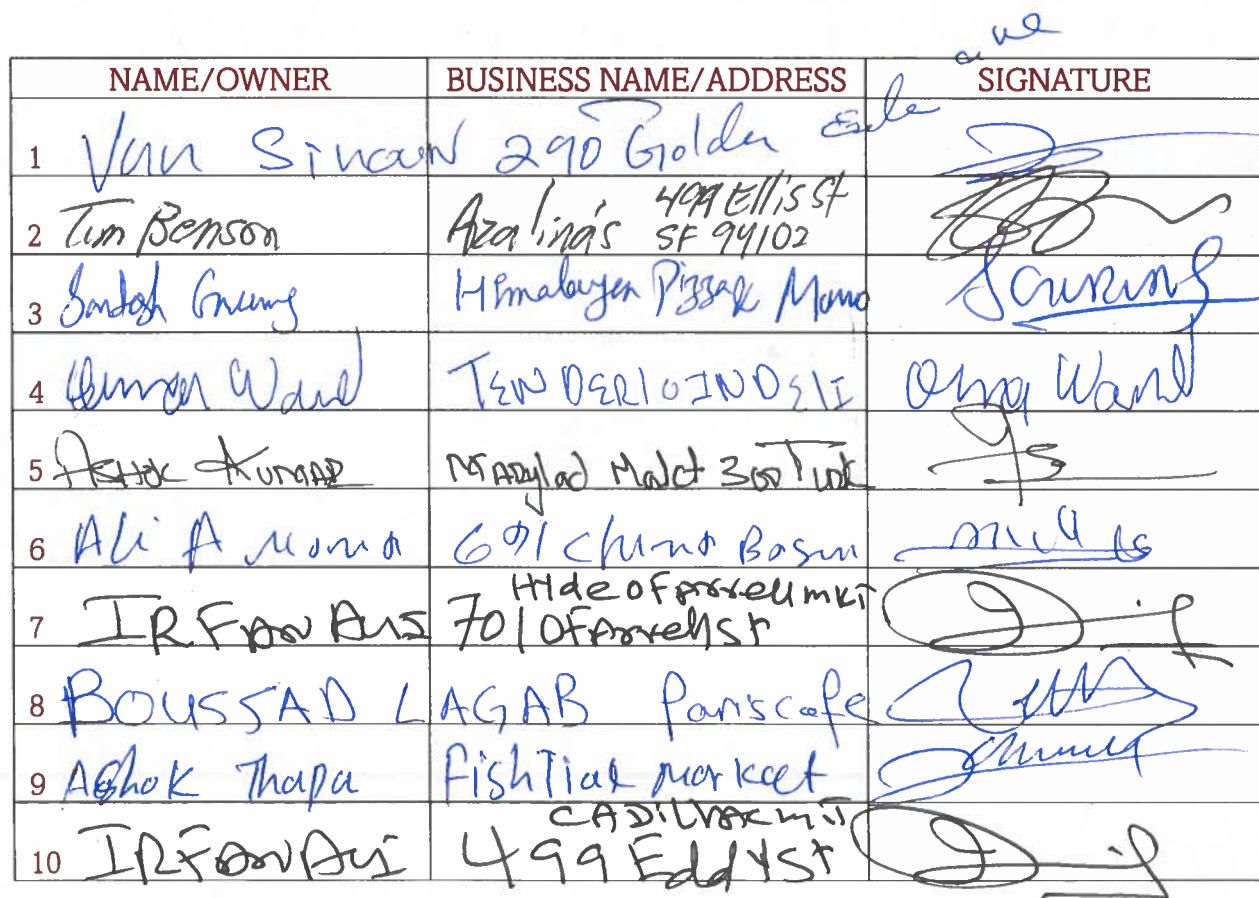 NAME/OWNER BUSINESS NAME/ADDRESS SIGNATURE
1 Van 290 Golden
ave
2 Tim Benson Azalina's 499 Ellis St
SF 94102
3 Santosh Himalayen Pizza & Momo
4 Ward TENDERLOIN DELI Ward
5 ASHOK KUMAR Market 300 Turk
6 Ali A 691 China Basin
7 IRFAN ALI Hyde OFarrell mkt
701 OFarrell St
8 BOUSSAD LAGAB Paris cafe
9 Ashok Thapa Fish Tial Market
10 IRFAN ALI CADILLAC mkt
499 Eddy St